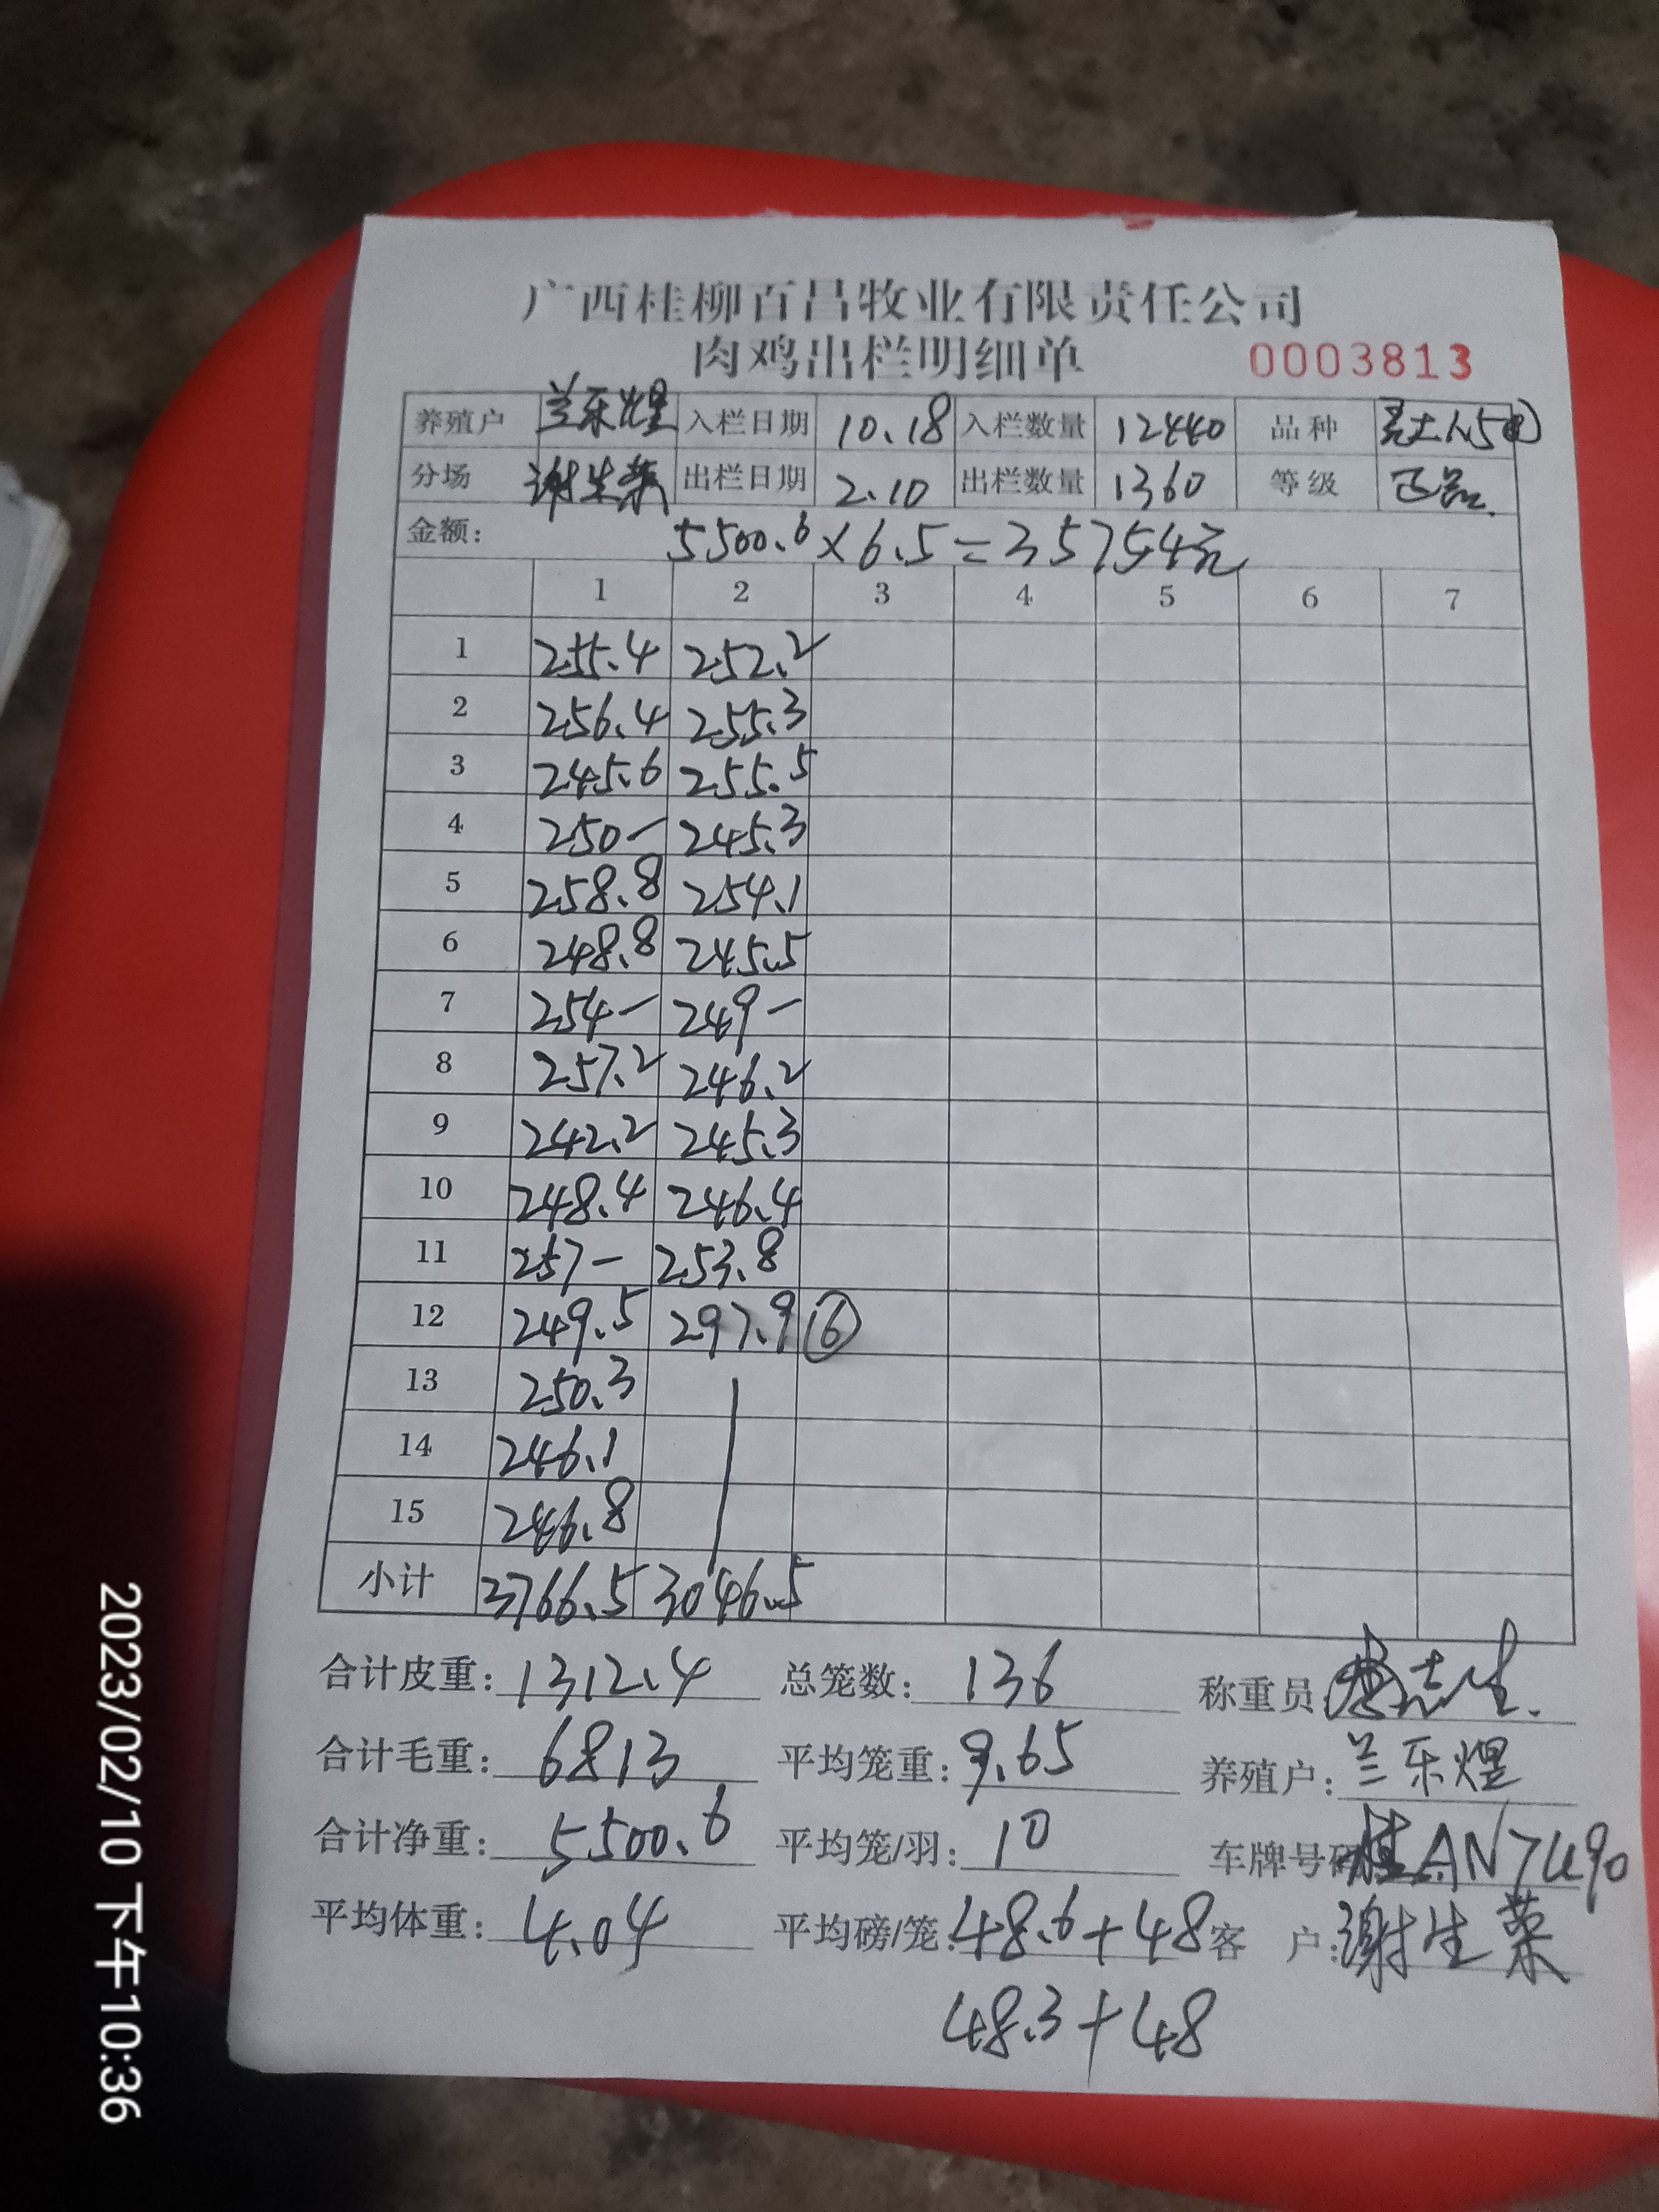 广西桂柳百昌牧业有限责任公司
肉鸡出栏明细单 0003813
养殖户 兰乐煌 入栏日期 10.18 入栏数量 12440 品种
分场 谢生菜 出栏日期 2.10 出栏数量 1360 等级 正品.
金额: 5500.6×6.5=35754元
1 2 3 4 5 6 7
1 255.4 252.2
2 256.4 255.3
3 245.6 255.5
4 250- 245.3
5 258.8 254.1
6 248.8 245.5
7 254- 249-
8 257.2 246.2
9 242.2 245.3
10 248.4 246.4
11 257- 253.8
12 249.5 297.9 ⑥
13 250.3
14 246.1
15 246.8
小计 3766.5 3046.5
合计皮重: 1312.4 总笼数: 136 称重员 志生.
合计毛重: 6813 平均笼重: 9.65 养殖户: 兰乐煌
合计净重: 5500.6 平均笼/羽: 10 车牌号码 桂AN7490
平均体重: 4.04 平均磅/笼: 48.6+48 客 户: 谢生菜
48.3+48
2023/02/10 下午10:36